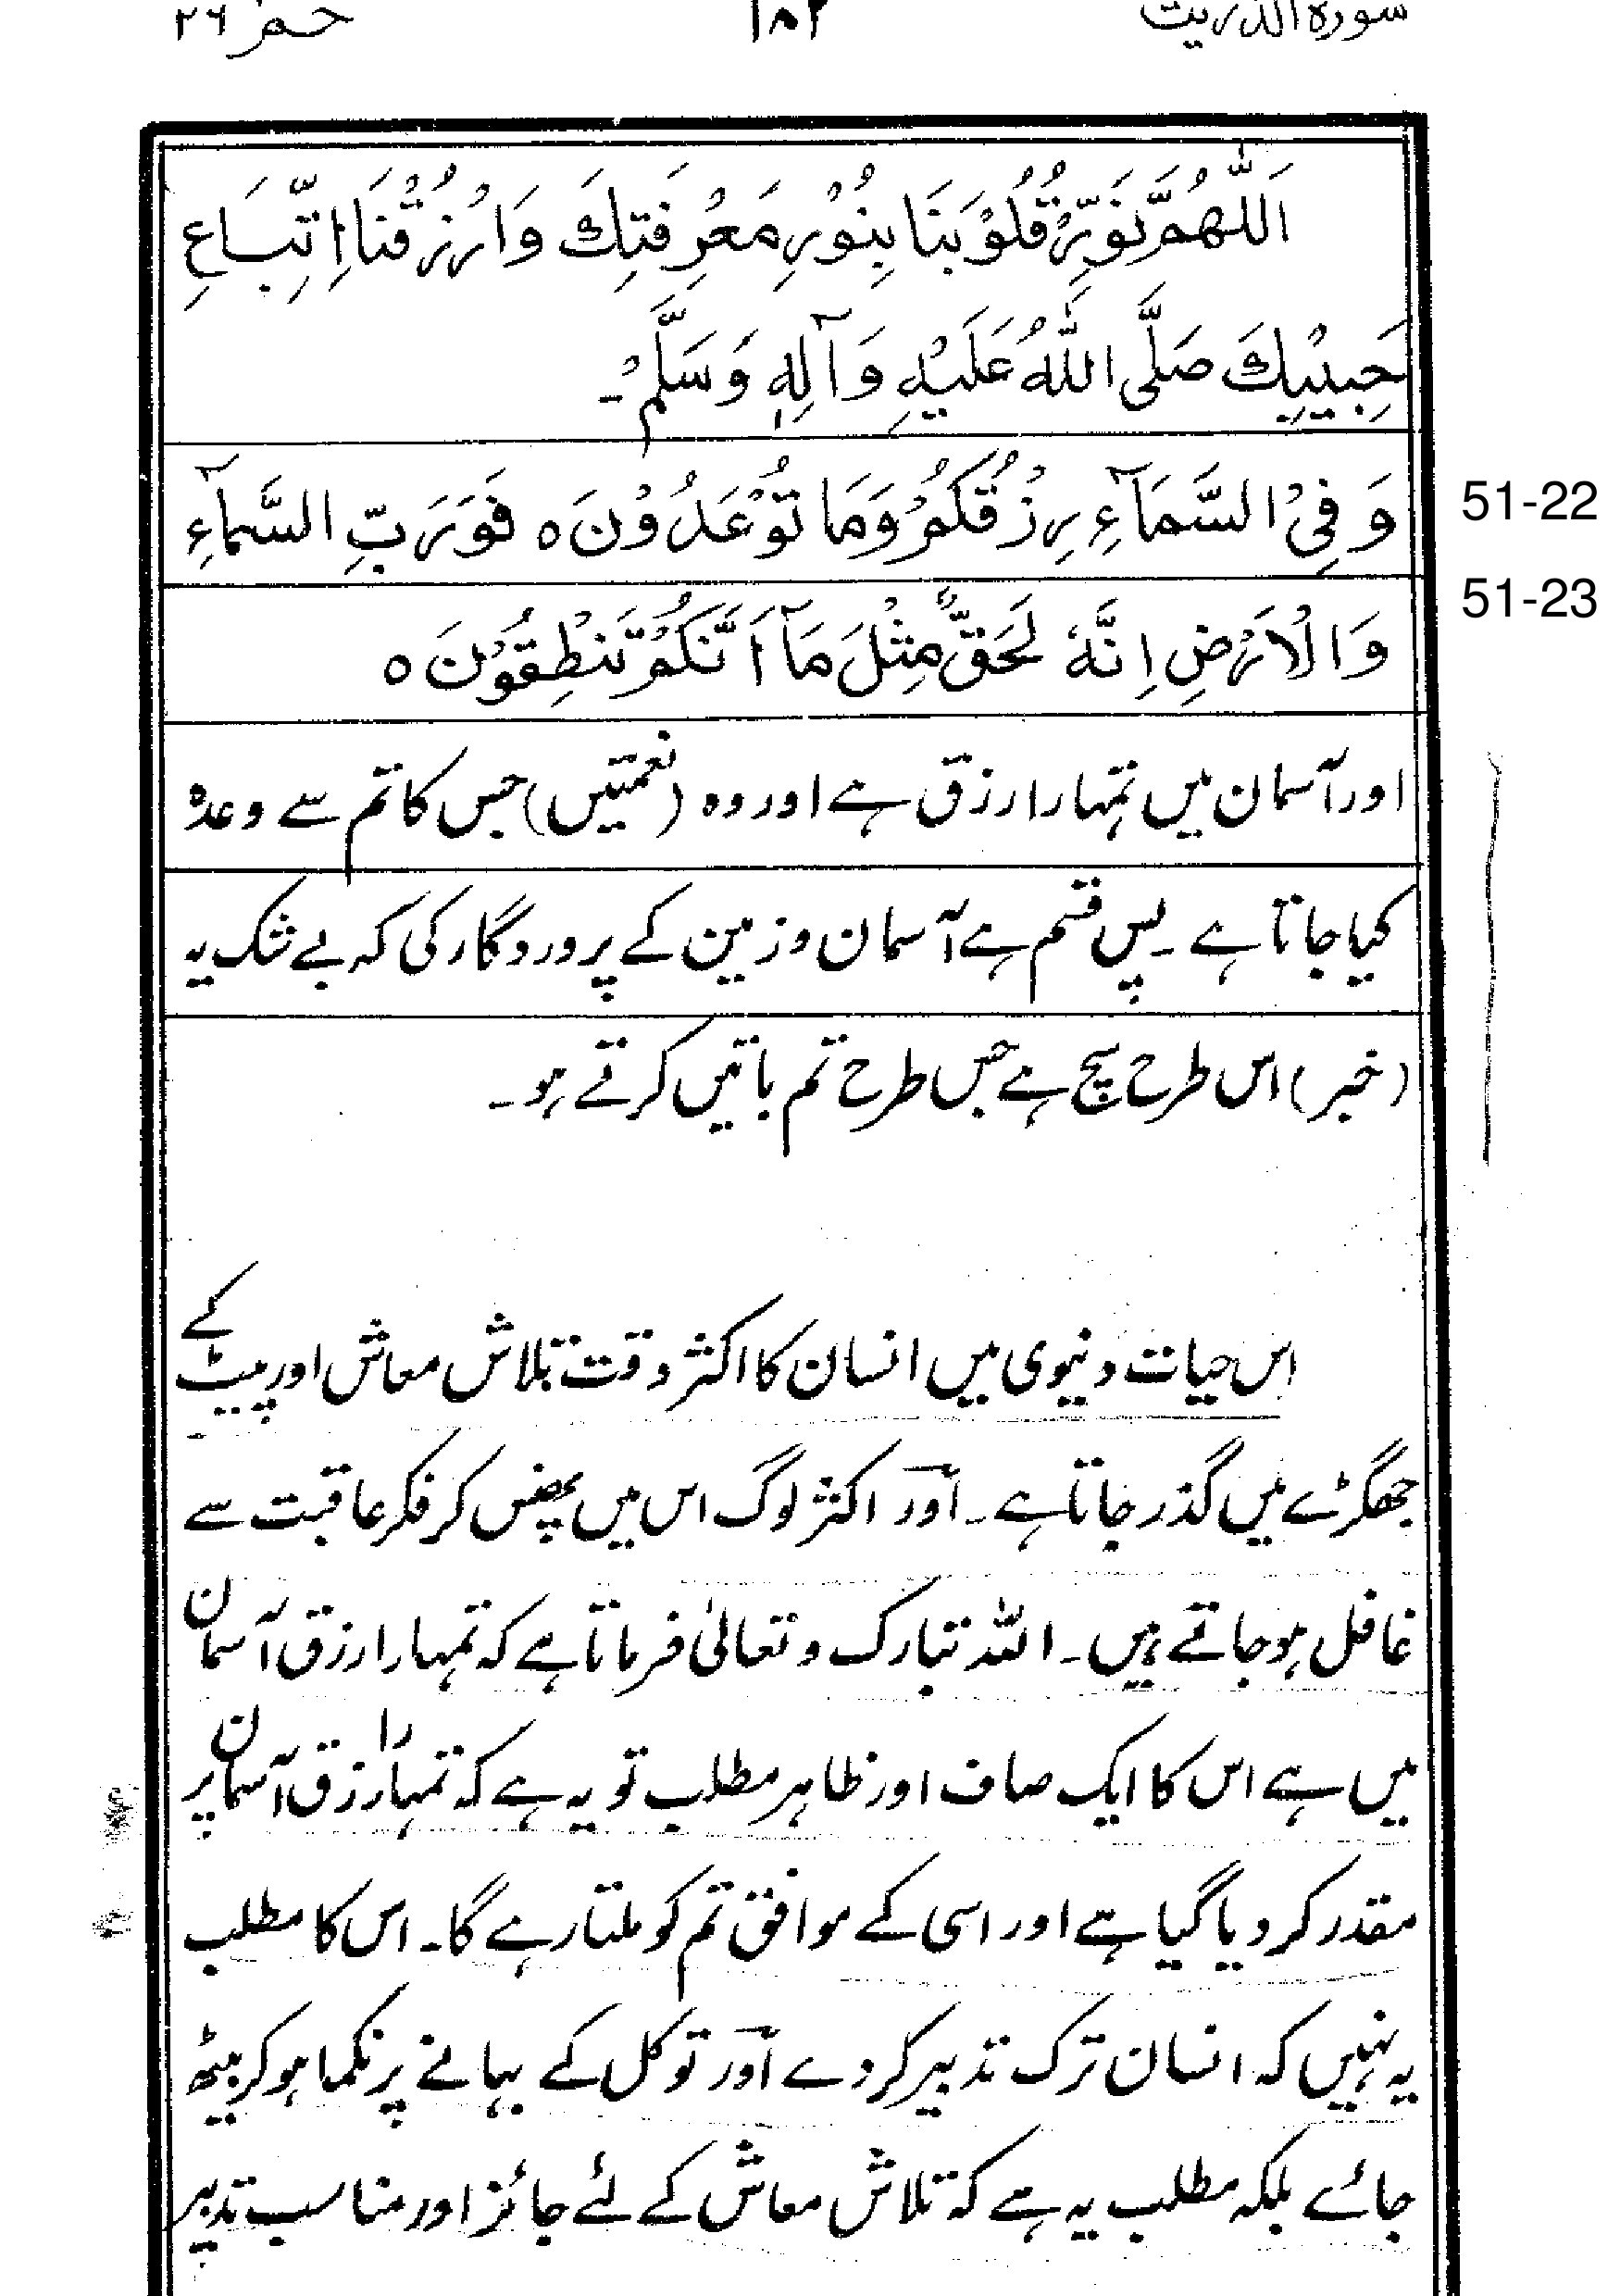 سورة الذریت ۱۸۲ حٰمٓ ۲۶
اَللّٰهُمَّ نَوِّرْ قُلُوْبَنَا بِنُوْرِ مَعْرِفَتِكَ وَارْزُقْنَا اِتِّبَاعِ
حَبِيْبِكَ صَلَّى اللّٰهُ عَلَيْهِ وَآلِهٖ وَسَلَّمْ۔
وَ فِیْ السَّمَآءِ رِزْقُکُمْ وَمَا تُوْعَدُوْنَ ه فَوَرَبِّ السَّمآءِ 51-22
وَالْاَرْضِ اِنَّهٗ لَحَقٌّ مِّثْلَ مَآ اَنَّكُمْ تَنْطِقُوْنَ ه 51-23
اور آسمان میں تمہارا رزق ہے اور وہ (نعمتیں) جس کا تم سے وعدہ
کیا جاتا ہے ۔ پس قسم ہے آسمان و زمین کے پروردگار کی کہ بے شک یہ
(خبر) اس طرح سچ ہے جس طرح تم باتیں کرتے ہو۔
اِس حیات دنیوی میں انسان کا اکثر وقت تلاش معاش اور پیٹ کے
جھگڑے میں گذر جاتا ہے۔ اور اکثر لوگ اس میں پھنس کر فکر عاقبت سے
غافل ہو جاتے ہیں۔ اللہ تبارک و تعالیٰ فرماتا ہے کہ تمہارا رزق آسمان
میں ہے اس کا ایک صاف اور ظاہر مطلب تو یہ ہے کہ تمہارا رزق آسمان پر
مقدر کر دیا گیا ہے اور اسی کے موافق تم کو ملتا رہے گا۔ اس کا مطلب
یہ نہیں کہ انسان ترک تدبیر کر دے اور توکل کے بہانے پر نکما ہو کر بیٹھ
جائے بلکہ مطلب یہ ہے کہ تلاش معاش کے لئے جائز اور مناسب تدبیر